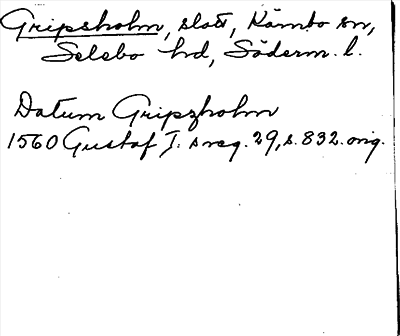 Gripsholm, slott, Kärnbo sn,
Selebo hd, Söderm. l.
Datum Gripzholm
1560 Gustaf I. s reg. 29, s. 832. orig.